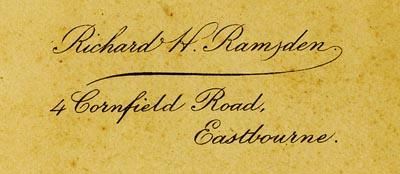 Richard H. Ramsden
4 Cornfield Road,
Eastbourne.